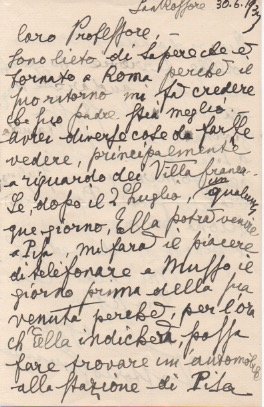 San Rossore 30.6.1935
Caro Professore, –
Sono lieto di sapere che è
tornato a Roma perchè il
suo ritorno mi fà credere
che suo padre stia meglio
avrei diverse cose da farLe
vedere, principalmente
a riguardo dei Villafranca.
Se, dopo il 2 Luglio, in qualun
que giorno, Ella potrà venire
a Pisa, mi farà il piacere
di telefonare a Musso, il
giorno prima della sua
venuta perchè, per l'ora
ch'Ella indicherà, possa
fare trovare un'automobile
alla stazione di Pisa